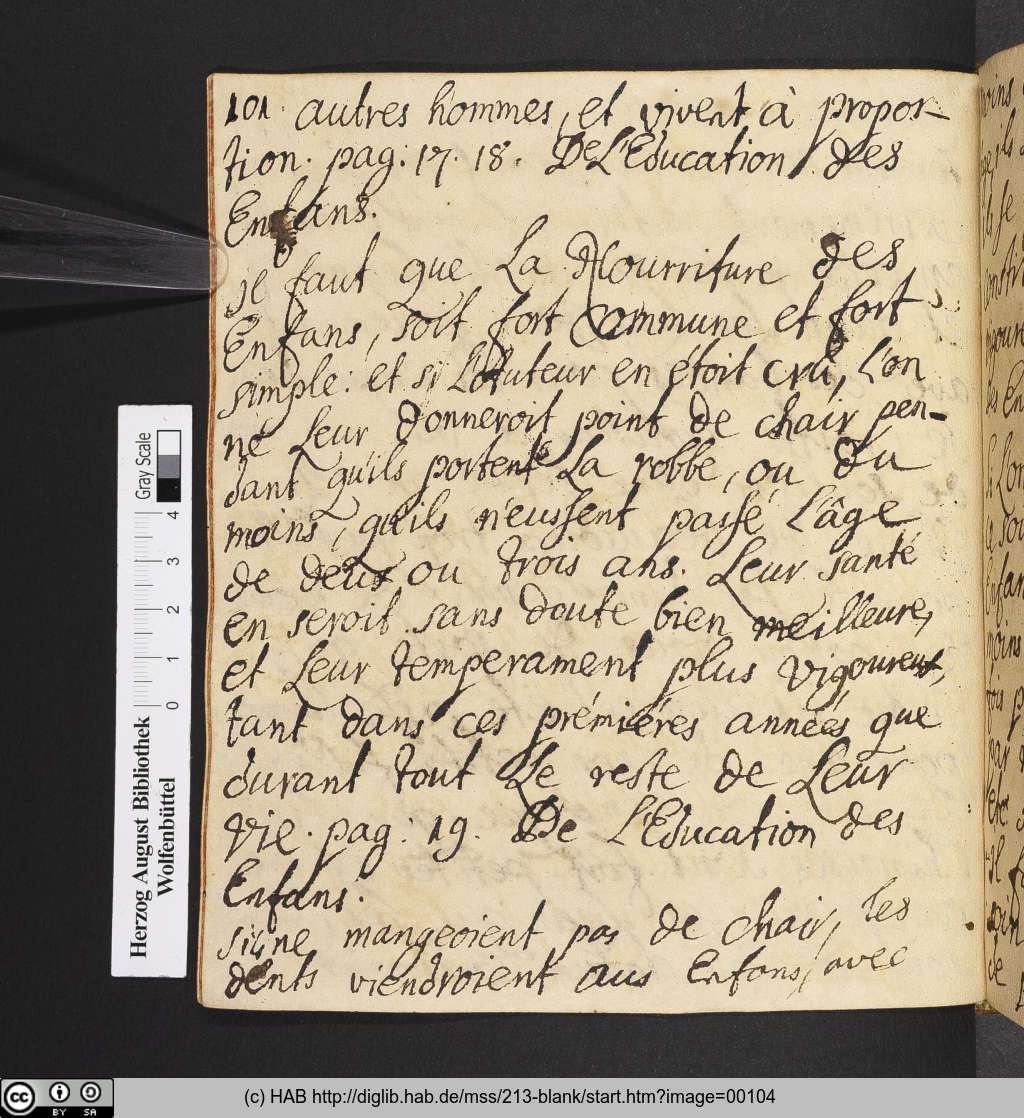 101. autres hommes, et vivent à propor-
tion. pag: 17. 18. De L'Education des
Enfans.
il faut que La Nourriture des
Enfans, soit fort Commune et fort
simple: et si L'Auteur en étoit crû, L'on
ne Leur donneroit point de chair pen-
dant qu'ils portent La robbe, ou du
moins, qu'ils n'eussent passé L'âge
de deux ou trois ans. Leur santé
en seroit sans doute bien meilleure,
et Leur temperament plus vigoureux,
tant dans ces prémiéres années que
durant tout Le reste de Leur
vie. pag: 19. De L'Education des
Enfans.
si ne mangeoient pas de chair, les
dents viendroient aus Enfans, avec
Gray Scale
4
3
2
1
0
Herzog August Bibliothek
Wolfenbüttel
(c) HAB http://diglib.hab.de/mss/213-blank/start.htm?image=00104
cc BY SA